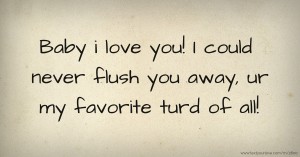 Baby i love you! I could
never flush you away, ur
my favorite turd of all!